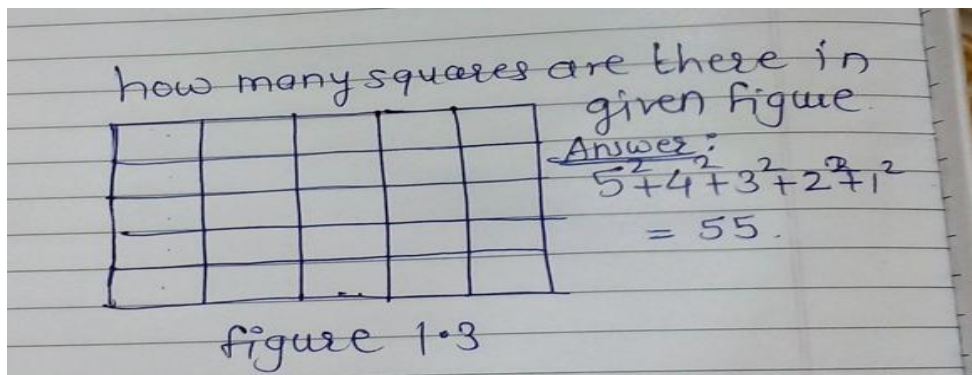 how many squares are there in
given figure
Answer:
5²+4²+3²+2²+1²
= 55.
figure 1.3